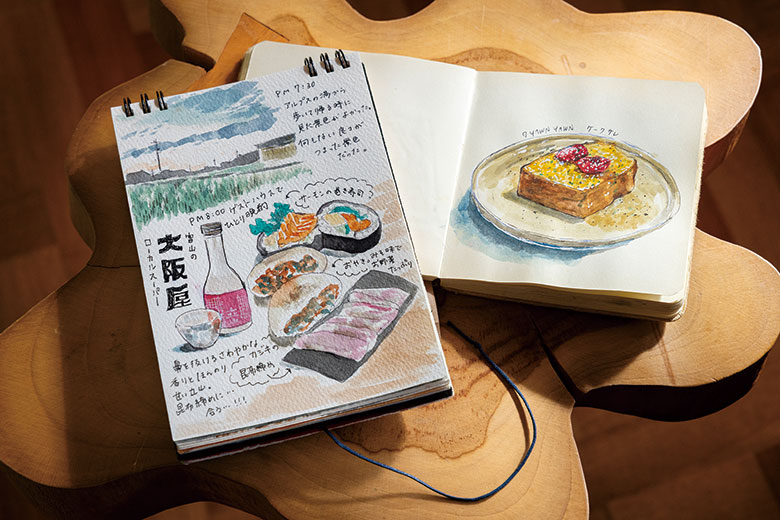 PM 7:30
アルプスの湯から
歩いて帰る時に
見た景色がよかった。
何もない良さが
つまった景色
だった。
PM 8:00 ゲストハウスで
ひとり晩酌
サーモンの巻き寿司
富山の
大阪屋
ローカルスーパー
おやき。みそ味で
お野菜
たっぷり
カジキの
昆布締め
鼻をぬけるさわやかな
香りとほんのり
甘い立山。
昆布締めに…
合う…!!!
YAWN YAWN ケークサレ